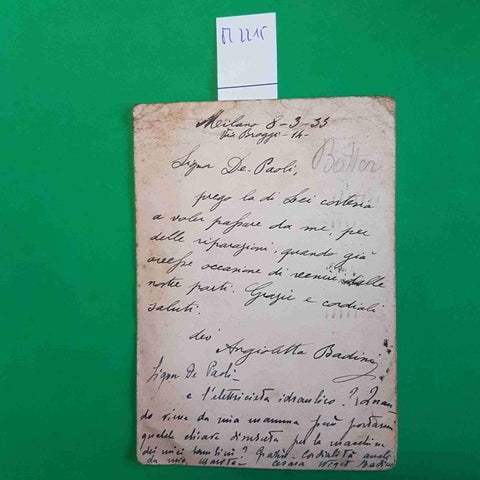 M 2215
Milano 8-3-35
Via Broggi - 14 -
Signor De-Paoli,
prego la di Lei cortesia
a voler passare da me, per
delle riparazioni, quando già
avesse occasione di venire dalle
nostre parti. Grazie e cordiali
saluti.
Angioletta Badini
Signor De Paoli -
e l'elettricista idraulico? Quan-
do viene da mia mamma può portarmi
qualche chiave per la macchina
dei miei bambini? Grazie. Cordialità anche
da mio marito - Badini